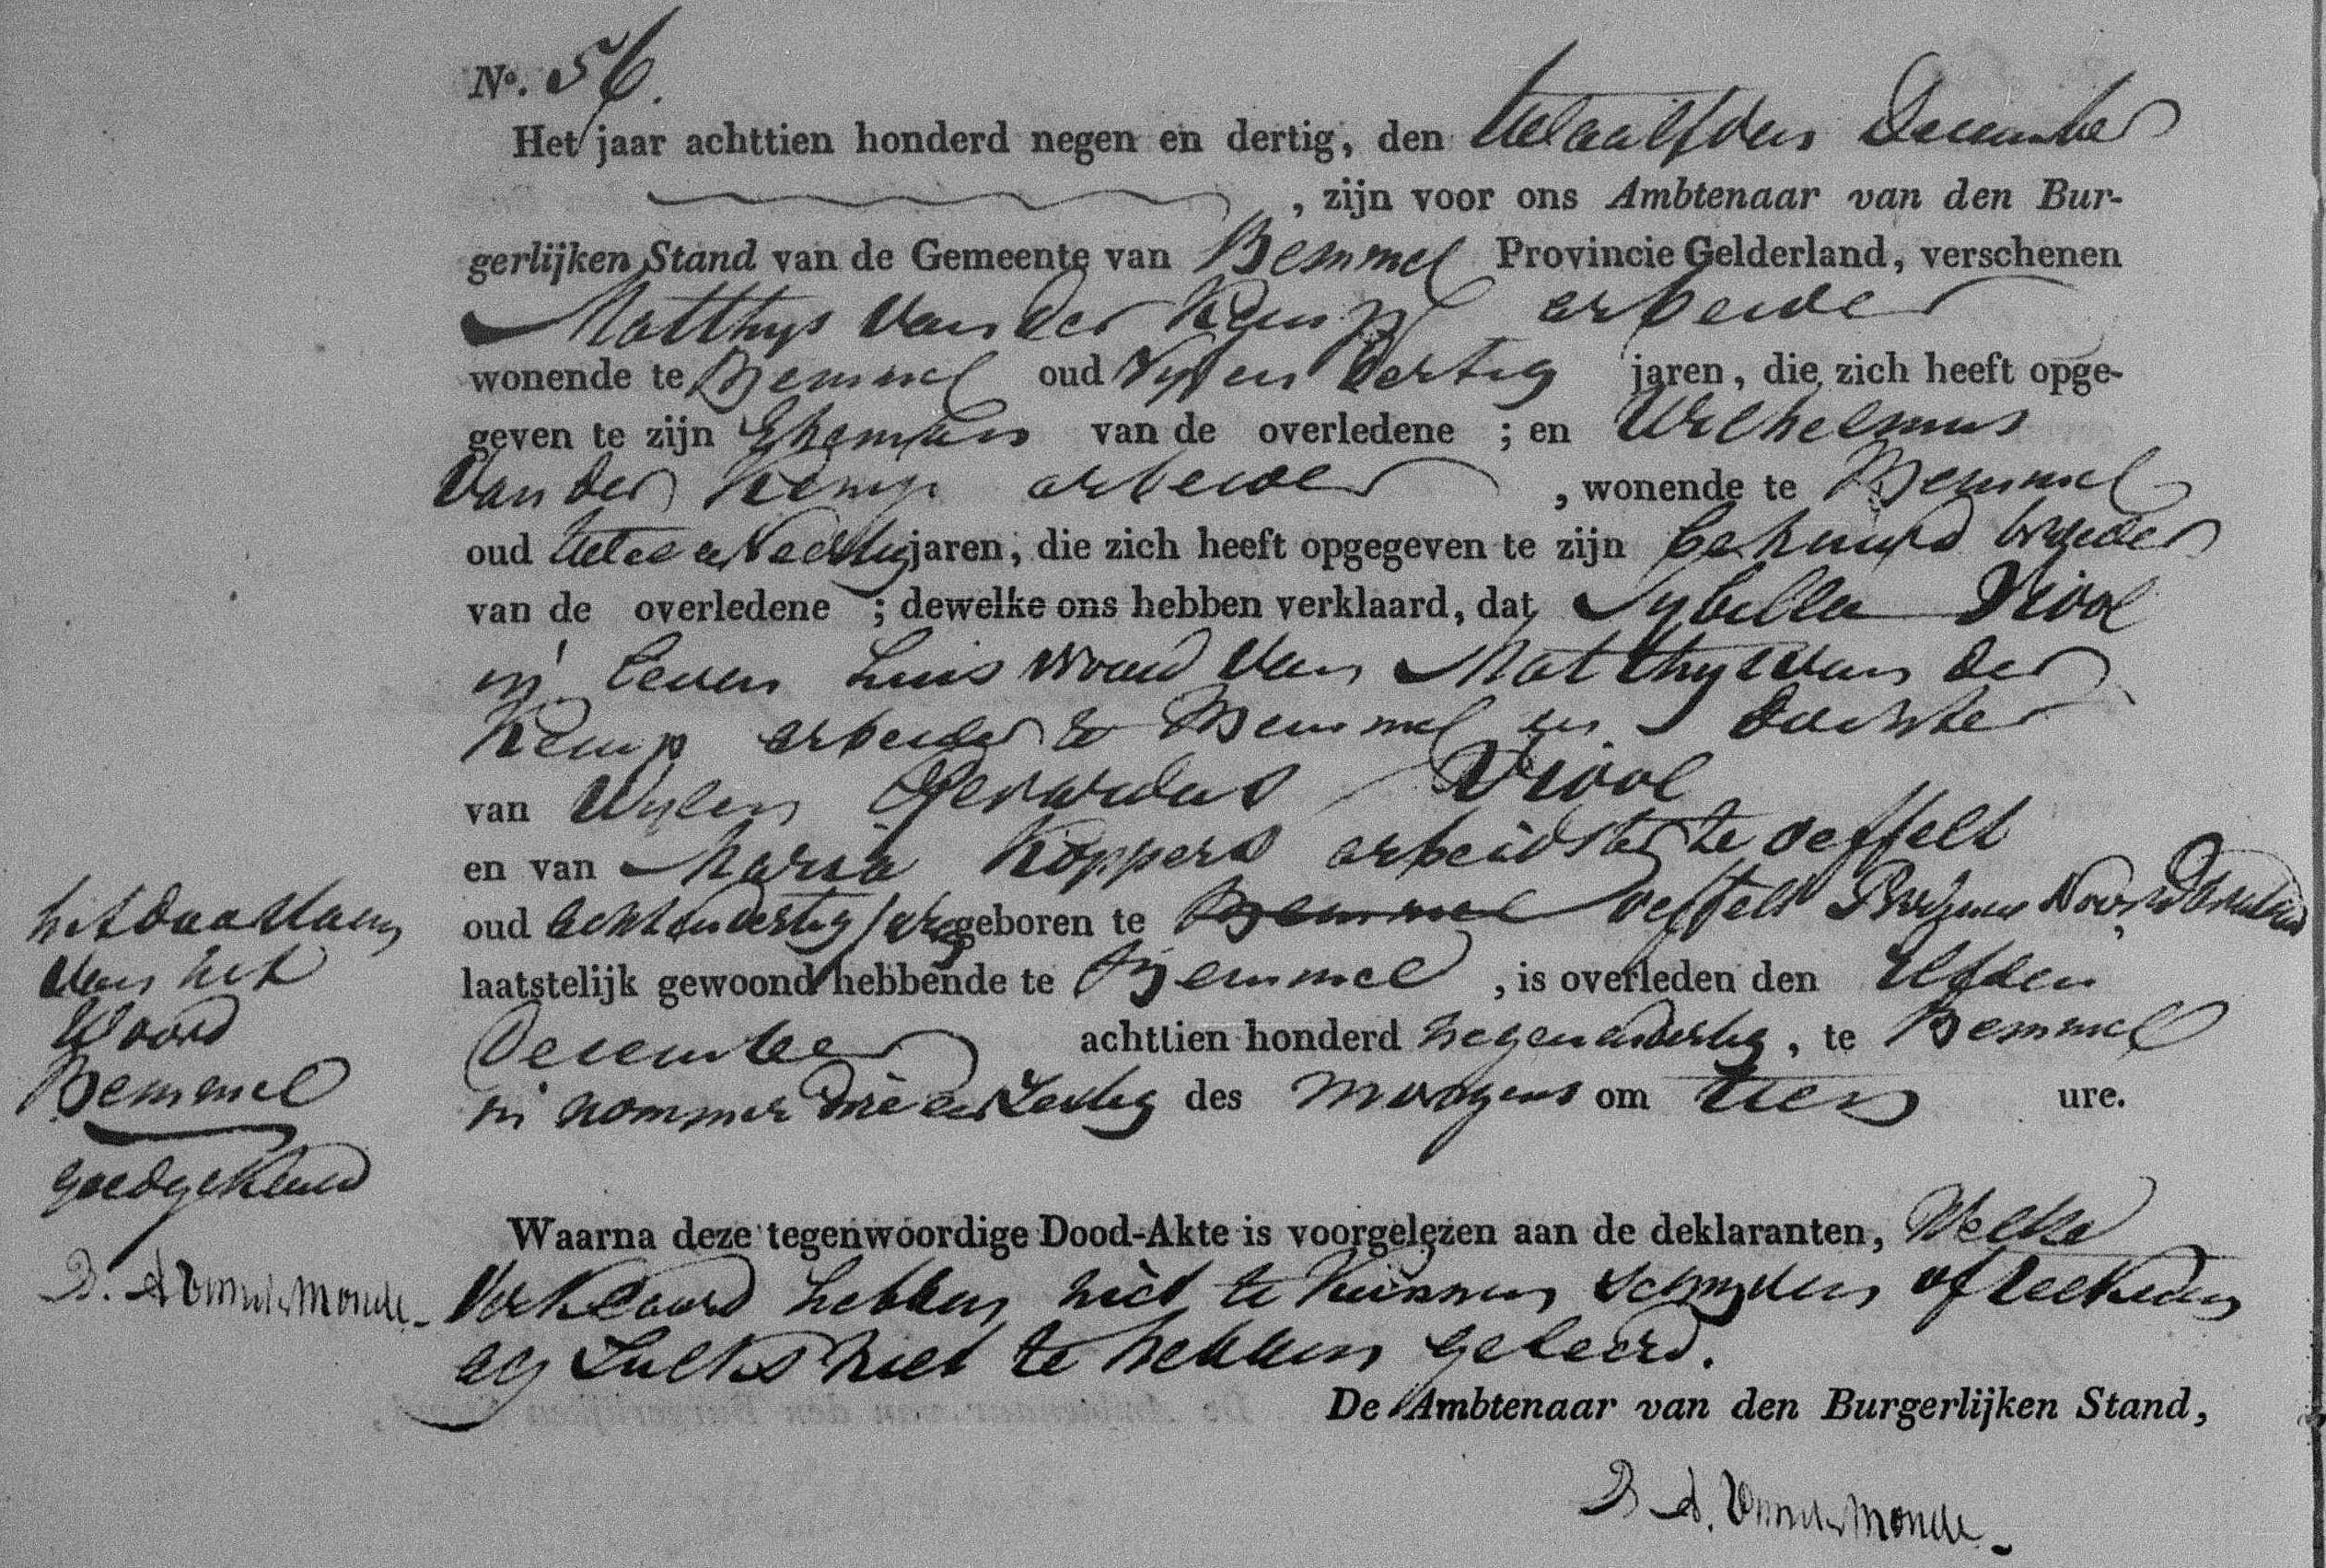 No. 56.
Het jaar achttien honderd negen en dertig, den twaalfden December
, zijn voor ons Ambtenaar van den Bur-
gerlijken Stand van de Gemeente van Bemmel Provincie Gelderland, verschenen
Matthys van der Kemp arbeider
wonende te Bemmel oud Vyf en dertig jaren, die zich heeft opge-
geven te zijn Eheman van de overledene ; en Wilhelmus
van der Kemp arbeider , wonende te Bemmel
oud twee en Veertig jaren, die zich heeft opgegeven te zijn behuwd broeder
van de overledene ; dewelke ons hebben verklaard, dat Sybilla Viool
in leven huis vrouw van Matthys van der
Kemp arbeider te Bemmel en dochter
van Wylen Gerardus Viool
en van Maria Koppers arbeidster te oeffelt
oud acht en dertig jaren geboren te Bemmel oeffelt Provincie Noordbraband
laatstelijk gewoond hebbende te Bemmel , is overleden den Elfden
December achttien honderd negen en dertig , te Bemmel
in nommer drie en Zestig des morgens om tien ure.
het doorslaan
van het
Woord
Bemmel
goedgekeurd
Waarna deze tegenwoordige Dood-Akte is voorgelezen aan de deklaranten, Welke
verklaard hebben niet te kunnen schryven of teekenen
als Zulks niet te hebben geleerd.
De Ambtenaar van den Burgerlijken Stand,